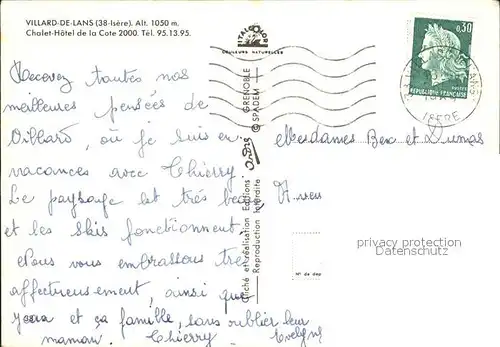 VILLARD-DE-LANS (38-Isère). Alt. 1050 m.
Chalet-Hôtel de la Cote 2000. Tél. 95.13.95.
ITALCOLOR
COULEURS NATURELLES
0,30
POSTES
REPUBLIQUE FRANÇAISE
ISERE
Recevez toutes nos
meilleures pensées de
Villard, où je suis en
vacances avec Thierry
Le paysage est très beau
et les skis fonctionnent.
Nous vous embrassons très
affectueusement, ainsi que
et sa famille, sans oublier leur
maman. Thierry Evelyne
Mesdames Bex et Dumas
GRENOBLE
© SPADEM
Cliché et réalisation Editions
Reproduction interdite
N° de dép
privacy protection
Datenschutz